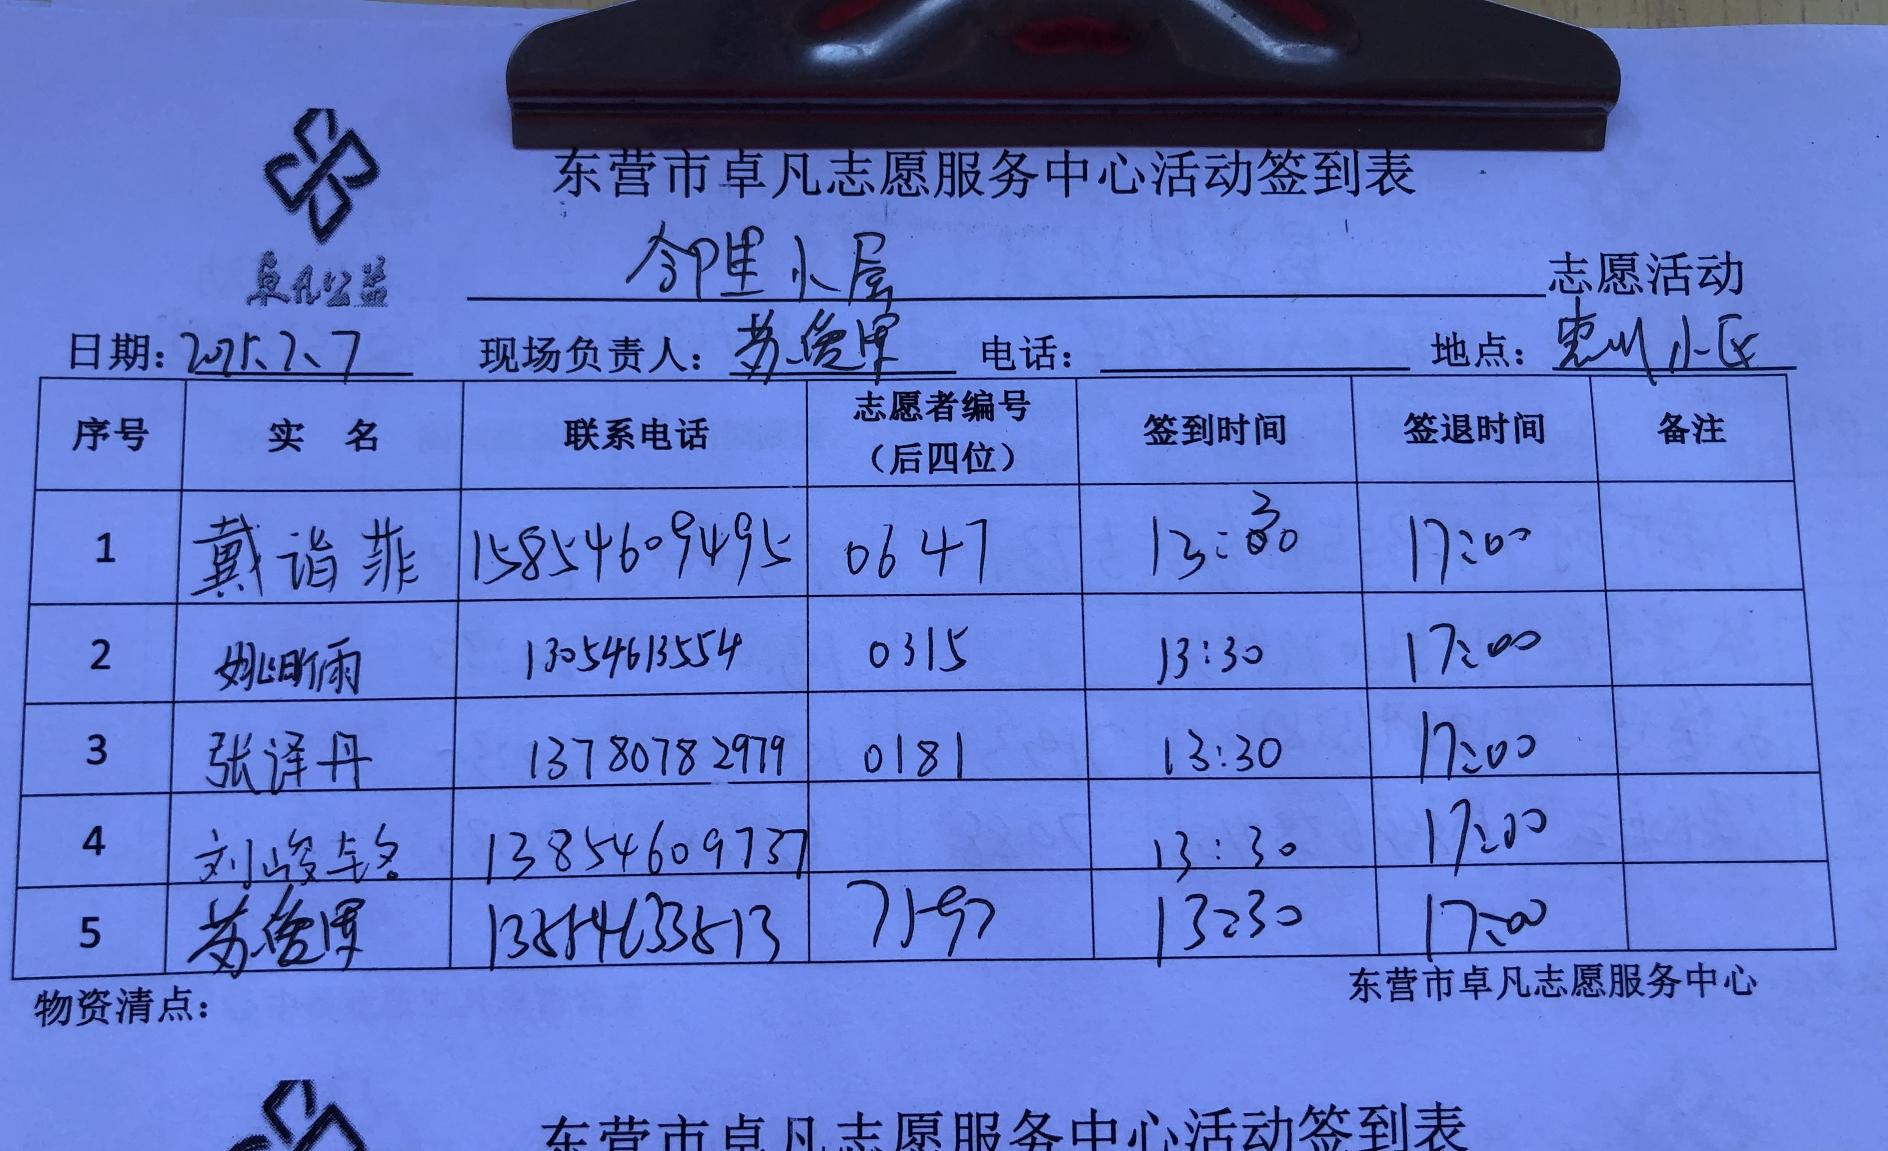 东营市卓凡志愿服务中心活动签到表
卓凡公益
邻里小屋 志愿活动
日期：2025.2.7 现场负责人：苏俊军 电话： 地点：惠州小区
序号 实 名 联系电话 志愿者编号（后四位） 签到时间 签退时间 备注
1 戴诣菲 15854609495 0647 13:30 17:00
2 姚昕雨 13054613554 0315 13:30 17:00
3 张译丹 13780782979 0181 13:30 17:00
4 刘峻铭 13854609737 13:30 17:00
5 苏俊军 13:30 17:00
物资清点： 东营市卓凡志愿服务中心
东营市卓凡志愿服务中心活动签到表